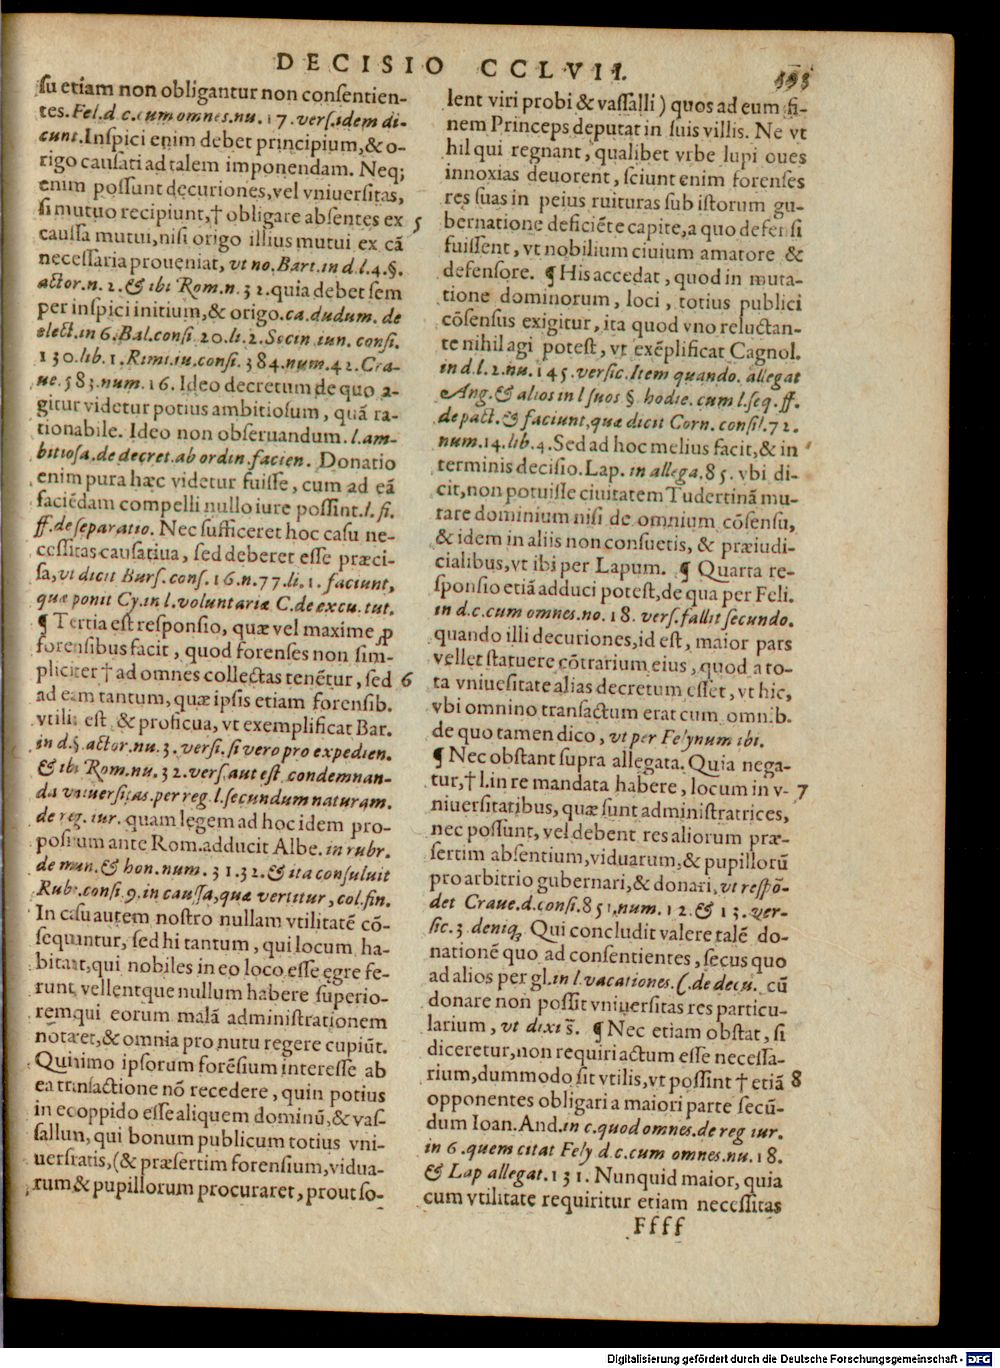 DECISIO CCLVII. 593
su etiam non obligantur non consentien-
tes. Fel. d c. cum omnes. nu. 17. vers. idem di-
cunt. Inspici enim debet principium, & o-
rigo causati ad talem imponendam. Neq;
enim possunt decuriones, vel vniuersitas,
si mutuo recipiunt, † obligare absentes ex 5
caussa mutui, nisi origo illius mutui ex cā
necessaria proueniat, vt no. Bart. in d. l. 4. §.
actor. n. 2. & ibi Rom. n. 32. quia debet sem
per inspici initium, & origo. ca. dudum. de
elect. in 6. Bal. consi. 20. li. 2. Socin iun. consi.
130. lib. 1. Rimi. iu. consi. 384. num. 42. Cra-
ue. 583. num. 16. Ideo decretum de quo a-
gitur videtur potius ambitiosum, quā ra-
tionabile. Ideo non obseruandum. l. am-
bitiosa. de decret. ab ordin. facien. Donatio
enim pura hæc videtur fuisse, cum ad eā
faciēdam compelli nullo iure possint. l. fi.
ff. de separatio. Nec sufficeret hoc casu ne-
cessitas causatiua, sed deberet esse præci-
sa, vt dicit Burs. cons. 16. n. 77. li. 1. faciunt,
quæ ponit Cy. in l. voluntariæ C. de excu. tut.
¶ Tertia est responsio, quæ vel maxime ꝓ
forensibus facit, quod forenses non sim-
pliciter † ad omnes collectas tenētur, sed 6
ad eam tantum, quæ ipsis etiam forensib.
vtilis est & proficua, vt exemplificat Bar.
in d. §. actor. nu. 3. versi. si vero pro expedien.
& ibi Rom. nu. 32. vers. aut est condemnan-
da vniuersitas. per reg. l. secundum naturam.
de reg. iur. quam legem ad hoc idem pro-
positum ante Rom. adducit Albe. in rubr.
de mun. & hon. num. 31. 32. & ita consuluit
Rube. consi. 9. in caussa, quæ vertitur, col. fin.
In casu autem nostro nullam vtilitatē cō-
sequuntur, sed hi tantum, qui locum ha-
bitant, qui nobiles in eo loco esse ęgre fe-
runt, vellentque nullum habere superio-
rem, qui eorum malā administrationem
notaret, & omnia pro nutu regere cupiūt.
Quinimo ipsorum forēsium interesse ab
ea transactione nō recedere, quin potius
in eo oppido esse aliquem dominū, & vas-
sallun, qui bonum publicum totius vni-
uersitatis, (& præsertim forensium, vidua-
rum & pupillorum procuraret, prout so-
lent viri probi & vassalli) quos ad eum fi-
nem Princeps deputat in suis villis. Ne vt
hil qui regnant, qualibet vrbe lupi oues
innoxias deuorent, sciunt enim forenses
res suas in peius ruituras sub istorum gu-
bernatione deficiēte capite, a quo defensi
fuissent, vt nobilium ciuium amatore &
defensore. ¶ His accedat, quod in muta-
tione dominorum, loci, totius publici
cōsensus exigitur, ita quod vno reluctan-
te nihil agi potest, vt exēplificat Cagnol.
in d. l. 2. nu. 145. versic. Item quando. allegat
Ang. & alios in l suos § hodie. cum l. seq. ff.
de pact. & faciunt, quæ dicit Corn. consil. 72.
num. 14. lib. 4. Sed ad hoc melius facit, & in
terminis decisio. Lap. in allega. 85. vbi di-
cit, non potuisse ciuitatem Tudertinā mu-
tare dominium nisi de omnium cōsensu,
& idem in aliis non consuetis, & præiudi-
cialibus, vt ibi per Lapum. ¶ Quarta re-
sponsio etiā adduci potest, de qua per Feli.
in d. c. cum omnes. no. 18. vers. fallit secundo.
quando illi decuriones, id est, maior pars
vellet statuere cōtrarium eius, quod a to-
ta vniuesitate alias decretum esset, vt hic,
vbi omnino transactum erat cum omnib.
de quo tamen dico, vt per Felynum ibi.
¶ Nec obstant supra allegata. Quia nega-
tur, † l. in re mandata habere, locum in v- 7
niuersitatibus, quæ sunt administratrices,
nec possunt, vel debent res aliorum præ-
sertim absentium, viduarum, & pupillorū
pro arbitrio gubernari, & donari, vt respō-
det Craue. d. consi. 851. num. 12. & 13. ver-
sic. 3 deniq; Qui concludit valere talē do-
nationē quo ad consentientes, secus quo
ad alios per gl. in l. vacationes. C. de decu. cū
donare non possit vniuersitas res particu-
larium, vt dixi s̄. ¶ Nec etiam obstat, si
diceretur, non requiri actum esse necessa-
rium, dummodo sit vtilis, vt possint † etiā 8
opponentes obligari a maiori parte secū-
dum Ioan. And. in c. quod omnes. de reg iur.
in 6. quem citat Fely d. c. cum omnes. nu. 18.
& Lap allegat. 131. Nunquid maior, quia
cum vtilitate requiritur etiam necessitas
Ffff
Digitalisierung gefördert durch die Deutsche Forschungsgemeinschaft - DFG